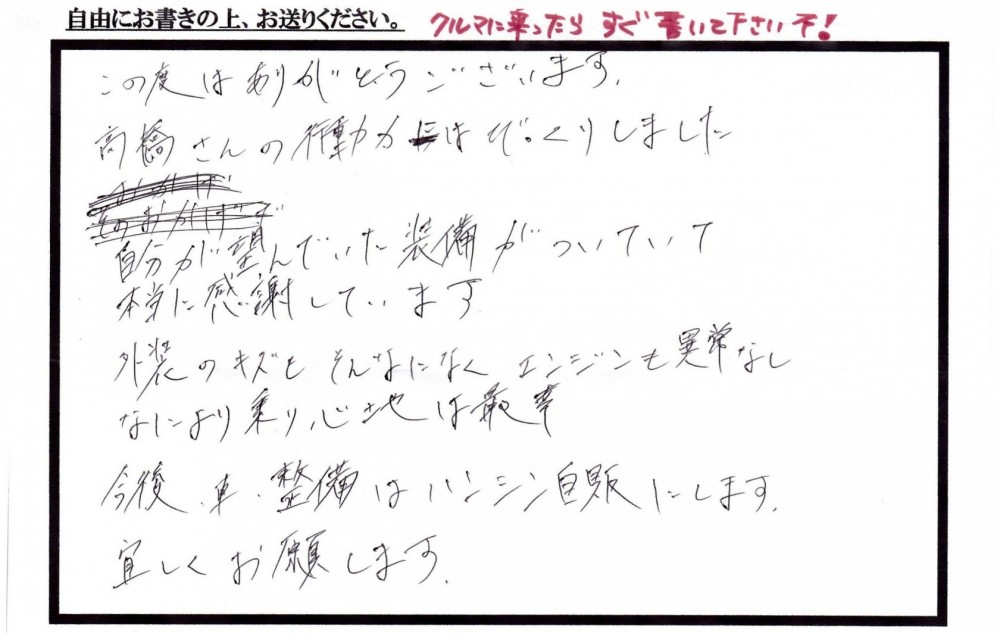 自由にお書きの上、お送りください。 クルマに乗ったら すぐ 書いて下さい 下!
この度は ありがとうございます.
高橋さんの行動力には びっくりしました
自分が望んでいた装備がついていて
本当に感謝しています
外装のキズも そんなになく エンジンも異常なし
なにより乗り心地は最幸
今後、車、整備はハンシン自販にします.
宜しくお願します.